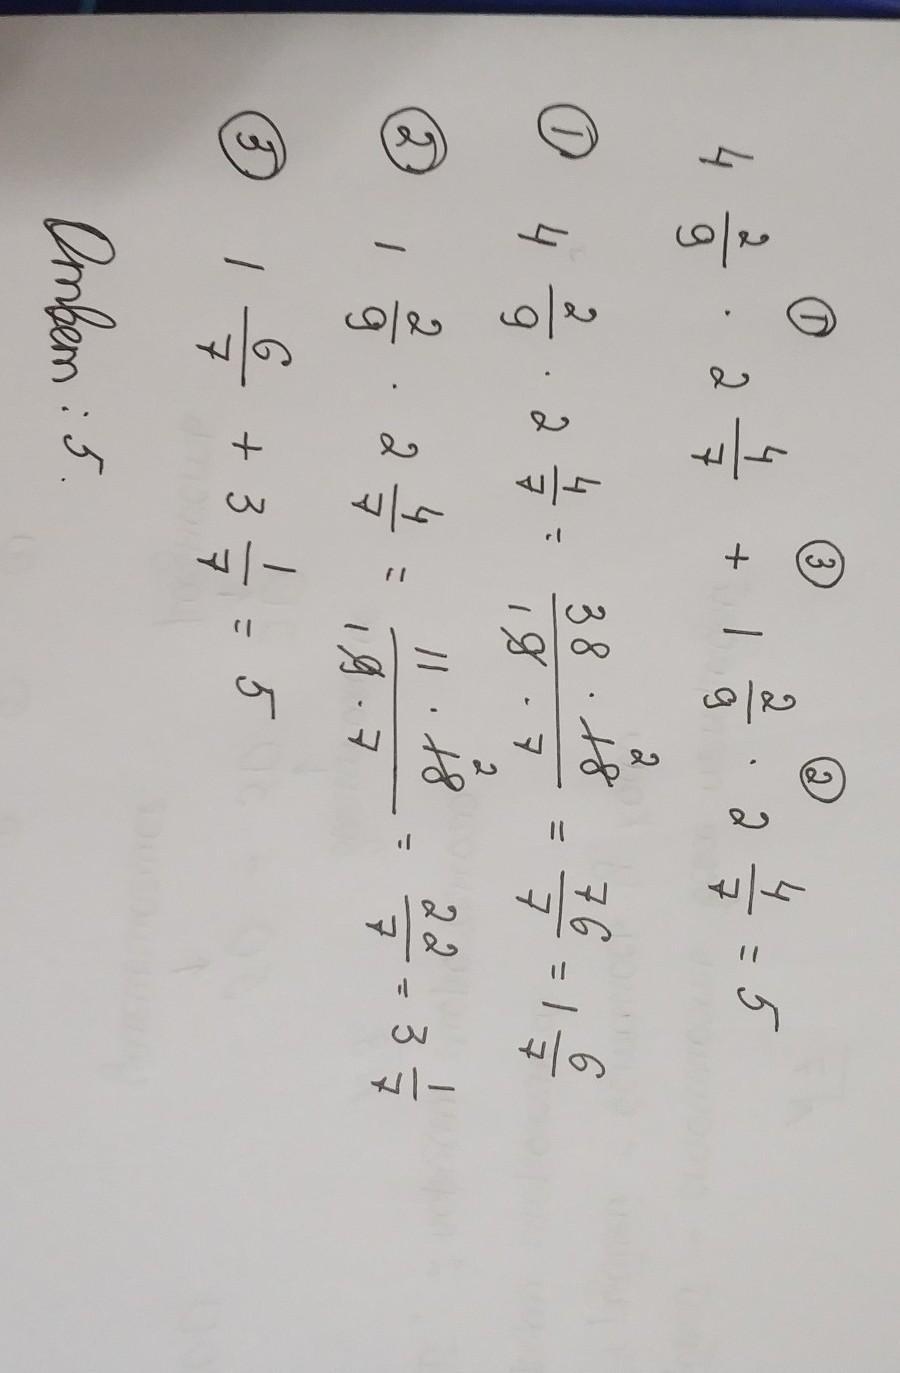 ① ③ ②
4 2/9 · 2 4/7 + 1 2/9 · 2 4/7 = 5
① 4 2/9 · 2 4/7 = 38 · 18 2 / 1 9 · 7 = 76/7 = 1 6/7
② 1 2/9 · 2 4/7 = 11 · 18 2 / 1 9 · 7 = 22/7 = 3 1/7
③ 1 6/7 + 3 1/7 = 5
Ответ: 5.